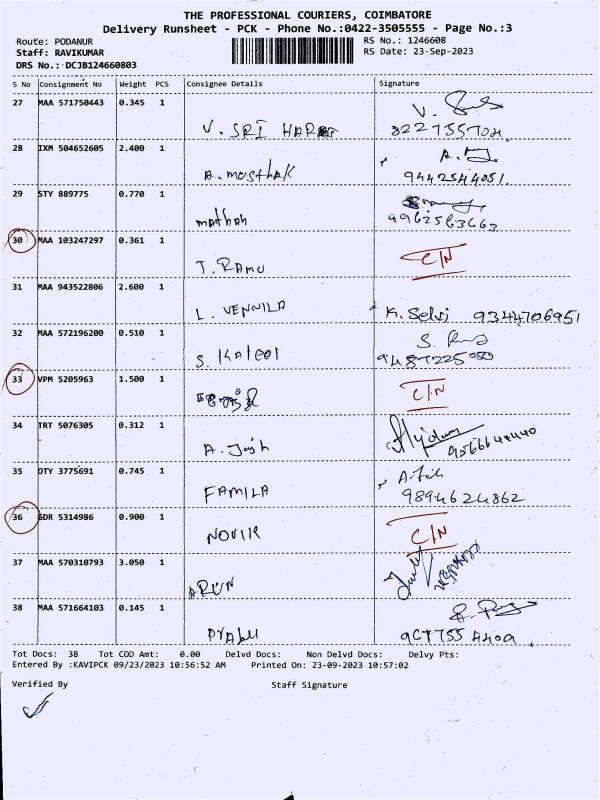 THE PROFESSIONAL COURIERS, COIMBATORE
Delivery Runsheet - PCK - Phone No.:0422-3505555 - Page No.:3
Route: PODANUR
Staff: RAVIKUMAR
DRS No.: DCJB124660803
RS No.: 1246608
RS Date: 23-Sep-2023
S No Consignment No Weight PCS Consignee Details Signature
27 MAA 571750443 0.345 1
V. SRI
28 IXM 504652605 2.400 1
A. Mosthak
9442544051
29 STY 889775 0.770 1
9962563663
30 MAA 103247297 0.361 1
T. RAMU C/N
31 MAA 943522806 2.600 1
L. VENNILA K. Selvi 9344706951
32 MAA 572196200 0.510 1
33 VPM 5205963 1.500 1
C/N
34 TRT 5076305 0.312 1
35 OTY 3775691 0.745 1
FAMILA 9894624862
36 GDR 5314986 0.900 1
C/N
37 MAA 570310793 3.050 1
ARUN
38 MAA 571664103 0.145 1
Prabu
Tot Docs: 38 Tot COD Amt: 0.00 Delvd Docs: Non Delvd Docs: Delvy Pts:
Entered By :KAVIPCK 09/23/2023 10:56:52 AM Printed On: 23-09-2023 10:57:02
Verified By Staff Signature